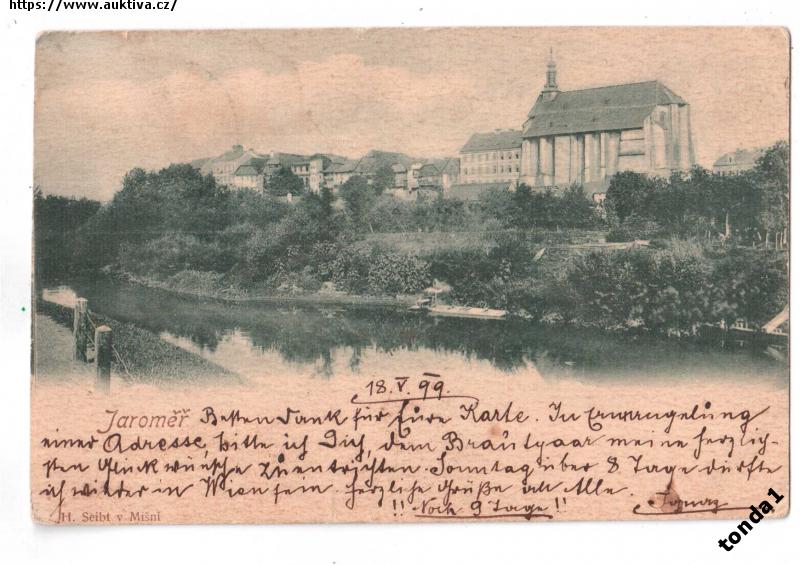 https://www.auktiva.cz/
18. V. 99.
Jaroměř Besten Dank für Eure Karte. In Ermangelung
einer Adresse, bitte ich Dich, dem Brautpaar meine herzlich-
sten Glückwünsche zu entrichten. Sonntag über 8 Tage dürfte
ich wieder in Wien sein. Herzliche Grüße an Alle.
!! Noch 9 Tage !! Ignaz
H. Seibt v Míšni
tonda1